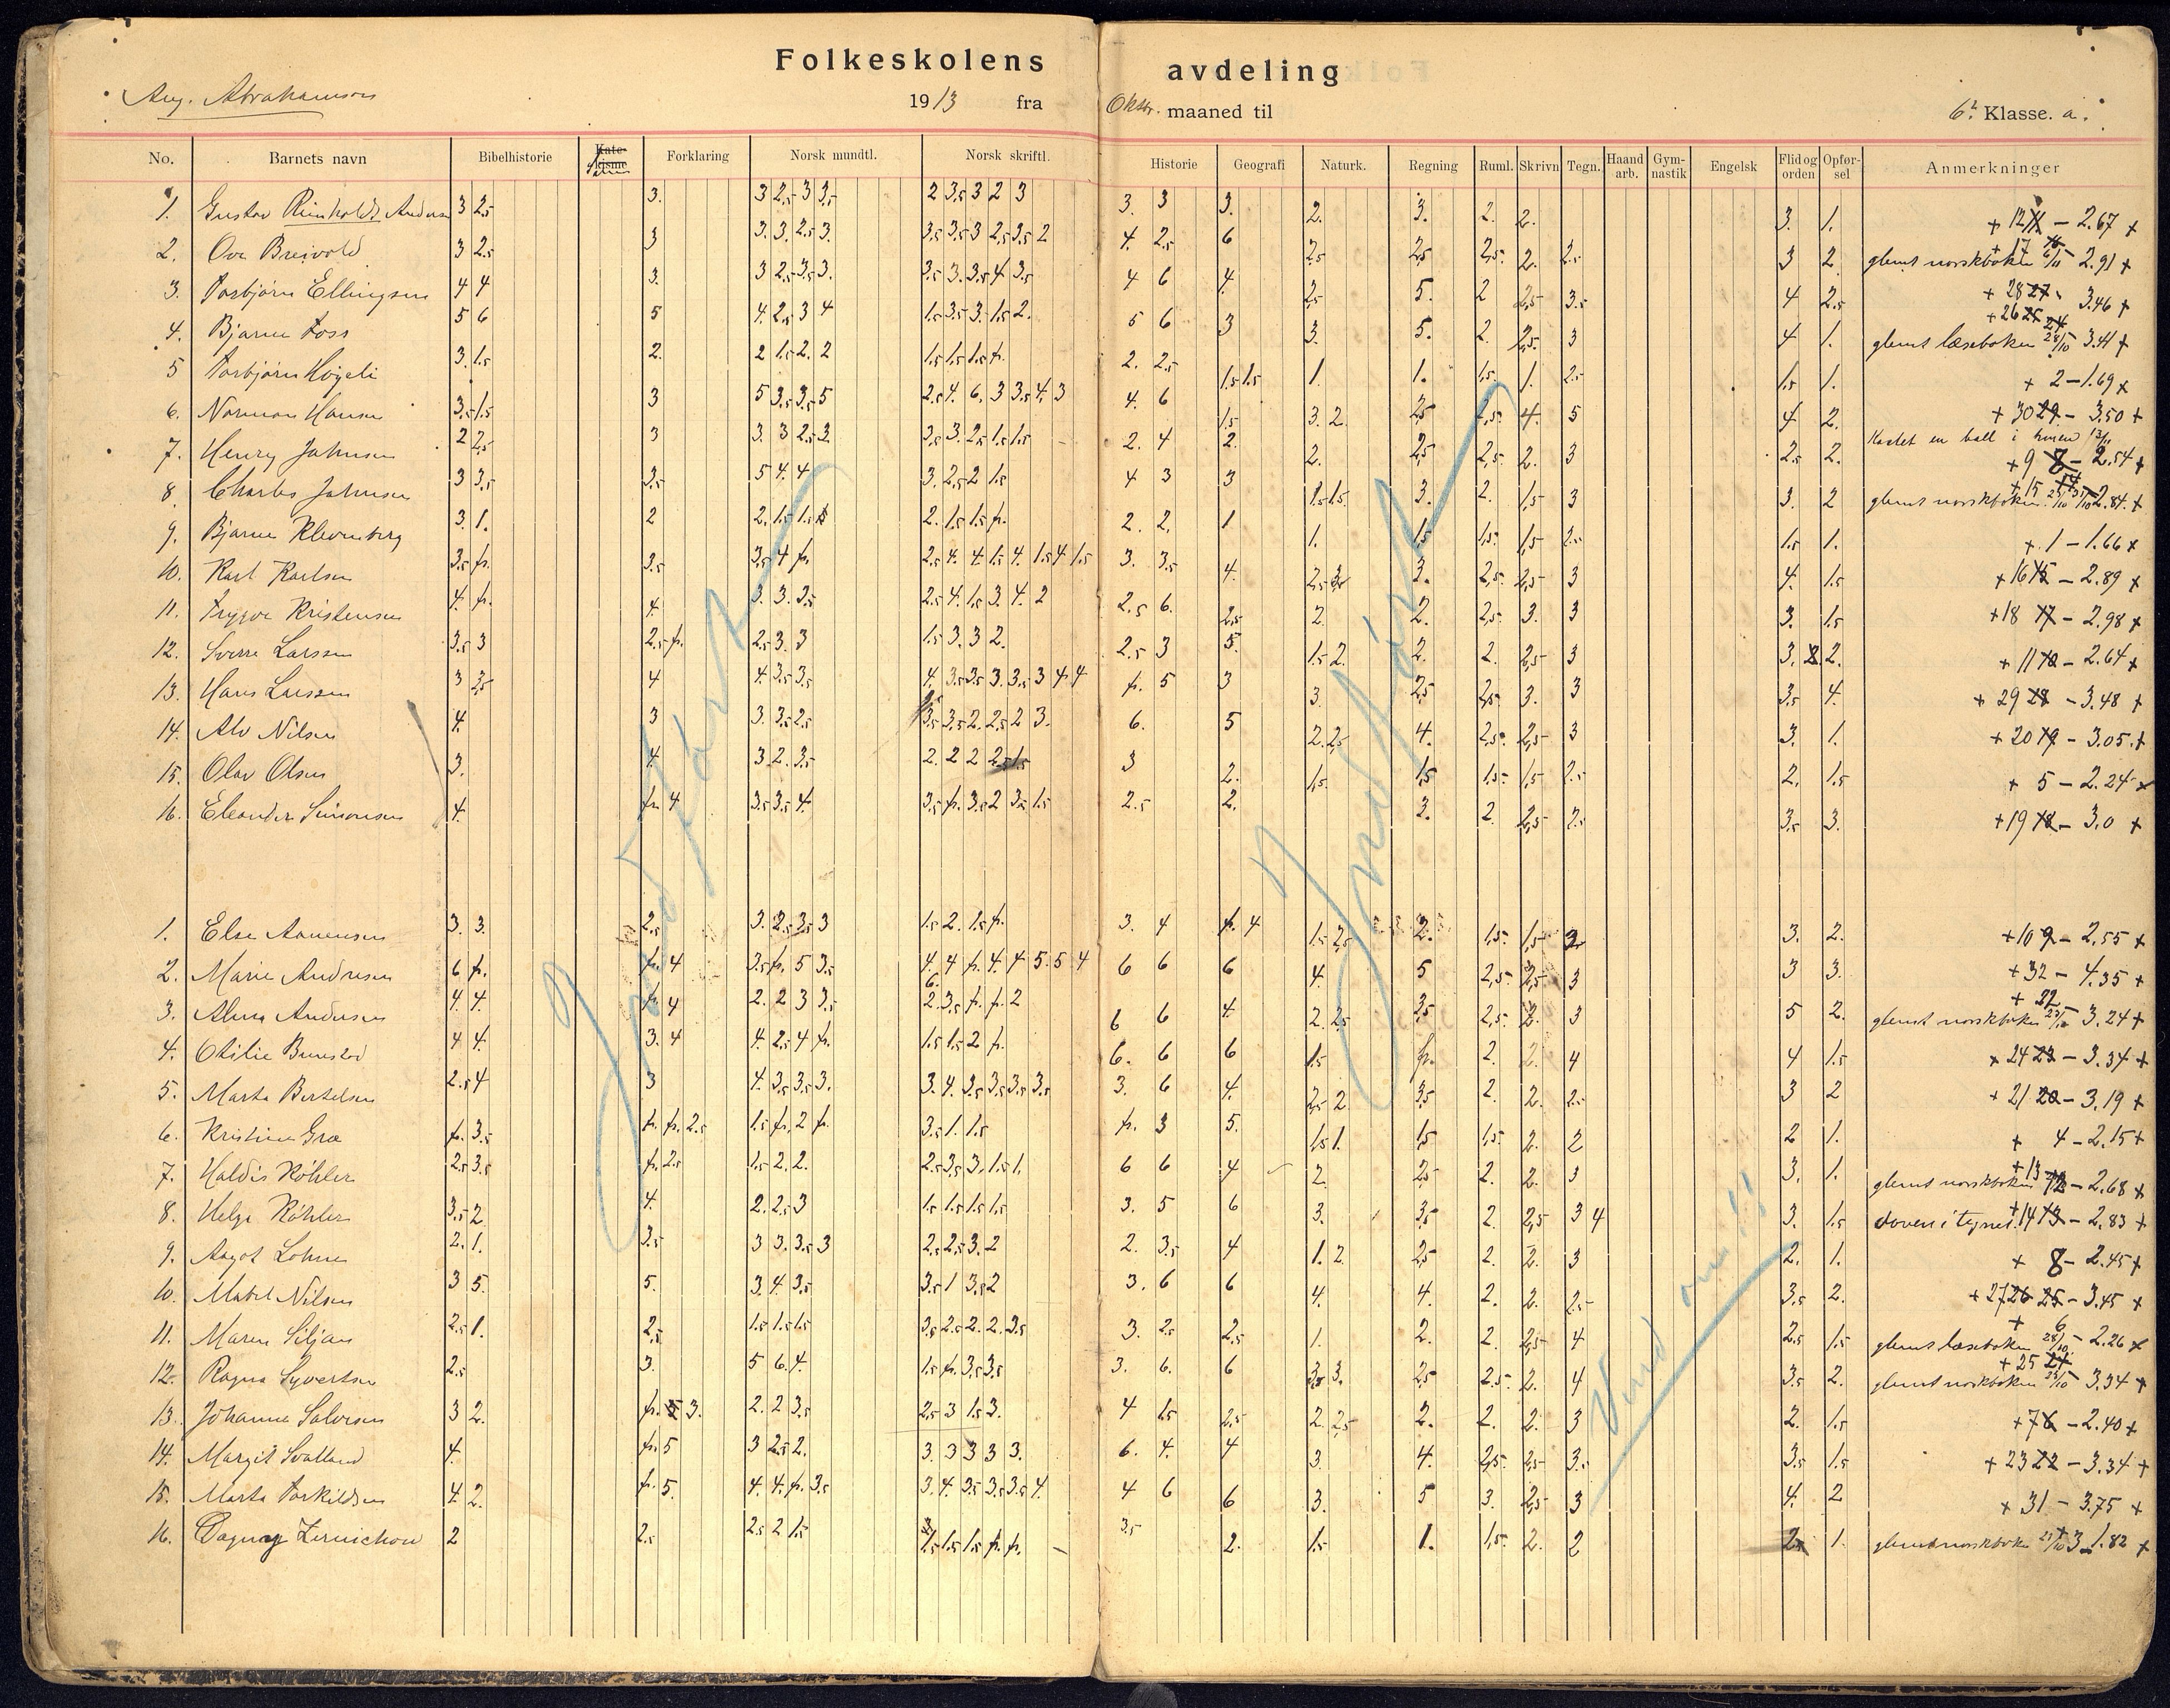 Folkeskolens avdeling
Aug. Abrahamson 1913 fra Oktbr. maaned til 6te Klasse. a.
No. Barnets navn Bibelhistorie Kate-kisme Forklaring Norsk mundtl. Norsk skriftl. Historie Geografi Naturk. Regning Ruml. Skrivn Tegn. Haand arb. Gym-nastik Engelsk Flid og orden Opfør-sel Anmerkninger
1. Gustav Reinholdt Anders 3 2.5 3. 3 2.5 3 3.5 2 3.5 3 2 3 3. 3 3. 2. 3. 2. 2. 3. 1. + 12 11 - 2.67 +
2. Ove Breivold 3 2.5 3 3. 3. 2.5 3. 3.5 3.5 3 2.5 3.5 2 4. 2.5 6 2.5 2.5 2.5 2. 2.5 3 2 glemt norskboken 6/11 + 17 16 - 2.91 +
3. Torbjørn Ellingsen 4 4 3. 3 2.5 3.5 3. 3.5 3. 3.5 4 3.5 4 6 4. 2.5 5. 2 2.5 3.5 4 2.5 + 28 27 - 3.46 +
4. Bjarne Foss 5 6 5 4. 2.5 3 4 1.5 3.5 3. 1.5 2. 5 6 3 3. 5. 2. 2.5 3 4 1. glemt læseboken 28/10 + 26 25 24 3.41 +
5 Torbjørn Høgeli 3. 1.5 2. 2 1.5 2. 2 1.5 1.5 1.5 fr. 2. 2.5 1.5 1.5 1. 1. 1.5 1. 2.5 1.5 1. + 2 - 1.69 x
6. Norman Hansen 3.5 1.5 3 5 3.5 3.5 5 2.5 4. 6. 3 3.5 4. 3 4. 6 1.5 3. 2. 2.5 2.5 4. 5 4. 2. + 30 29 - 3.50 +
7. Henry Johnsen 2 2.5 3 3. 3 2.5 3. 3.5 3. 2.5 1.5 1.5 - 2. 4 2. 2. 2.5 2.5 2. 3 2.5 2. Kastet en ball i 13/11 + 9 8 - 2.54 +
8. Charles Johnsen 3 3.5 3.5 5 4. 4 3. 2.5 2 1.5 4 3 3 1.5 1.5 3. 2. 1.5 3 3. 2 glemt norskboken + 15 14 2.84. +
9. Bjarne Klevenberg 3. 1. 2 2. 1.5 1.5 2. 1.5 1.5 fr. 2. 2. 1 1. 1.5 1.5 1.5 2.5 1.5 1. + 1 - 1.66 x
10. Karl Karlsen 3.5 fr. 3.5 3.5 4 fr. 2.5 4. 4 1.5 4. 1.5 4 1.5 3. 3.5 4. 2.5 3. 2.5 2.5 3 4. 1.5 + 16 15 - 2.89 x
11. Trygve Kristensen 4. fr. 4. 3. 3. 3.5 2.5 4. 1.5 3. 4. 2 2.5 6. 2.5 2. 2. 2.5 3. 3 3. 1.5 + 18 17 - 2.98 x
12. Sverre Larssen 3.5 3 2.5 fr. 2.5 3. 3 1.5 3. 3 2. 2.5 3 5. 1.5 2. 2. 2. 2.5 3 3. 2. + 11 10 - 2.64 +
13. Hans Larssen 3 3.5 4 4. 3.5 3.5 4. 3.5 3.5 3. 3.5 3 4 4 fr. 5 3 3. 2.5 2.5 3. 3 3.5 4. + 29 28 - 3.48 +
14. Alv Nilsen 4. 3 3. 3.5 2.5 3.5 3.5 2. 2.5 2 3. 6. 5 2. 2.5 4. 2.5 2.5 3 3. 1. + 20 19 - 3.05 +
15. Olav Olsen 3. 4. 3. 2. 3.5 2. 2 2 2.5 1.5 3 2. 1.5 1.5 1.5 1.5 2.5 2. 1.5 + 5 - 2.24 x
16. Eleander Simonsen 4. fr. 4 3.5 3.5 4 3.5 fr. 3.5 2 3.5 1.5 2.5 2. 3. 2 2.5 2.5 3.5 3. + 19 18 - 3.0 +
1. Else Aanensen 3. 3. 2.5 3. 2.5 3.5 3 1.5 2. 1.5 fr. 3. 4 fr. 4 1.5 2.5 2. 1.5 1.5 3. 2. + 10 9 - 2.55 +
2. Marie Andresen 6 fr. fr. 4 3.5 fr. 5 3.5 4. 4 fr. 4. 4 5. 5 4 6. 6 6 6 4. 5 2.5 2.5 3 3 3. + 32 - 4.35 +
3. Alma Andersen 4. 4. fr. 4 2. 2 3 3.5 2. 3.5 fr. fr. 2 6 6 4. 2. 2.5 3.5 2.5 2. 3 5 2. glemt norskboken + 22 3.24 +
4. Otilie Bunestad 4 4. 3. 4 4. 2.5 4 fr. 1.5 1.5 2 fr. 6. 6 6 1.5 fr. 2. 2. 4 4 1.5 x 24 23 - 3.34 +
5. Marta Bertelsen 2.5 4 3 4. 3.5 3.5 3. 3. 4. 3.5 3.5 3.5 3.5 3. 6 4. 2.5 2 3.5 2. 2. 2.5 3 2 + 21 20 - 3.19 +
6. Kristine Gra fr. 3.5 fr. fr. 2.5 1.5 fr. 2 fr. 3.5 1. 1.5 fr. 3 5. 1.5 1. 1.5 1.5 2. 2 2 1. + 4 - 2.15 +
7. Haldis Köhler 2.5 3.5 fr. 2.5 1.5 2. 2. 2.5 3.5 3. 1.5 1. 6 6 4 2. 2.5 2. 2. 3 3. 1. glemt norskboken + 13 12 - 2.68 x
8. Helga Köhler 3.5 2 4. 2. 2.5 3 1.5 1.5 1.5 1.5 3. 5 6 3. 3.5 2. 2.5 3 4 3. 1.5 doven i tegnet. + 14 13 - 2.83 +
9. Aagot Lohne 2. 1. 3.5 3 3. 3.5 3 2.5 2.5 3. 2 2. 3.5 4 1. 2. 2.5 2. 2. 3 2. 1. + 8 - 2.45 +
10. Mabel Nilsen 3 5. 5. 3. 4. 3.5 3.5 1 3.5 2 3. 6 6 4. 4. 2. 2. 2.5 3.5 2. + 27 26 25 - 3.45 +
11. Maren Siljan 2.5 1. 2.5 1.5 1.5 1.5 3.5 2.5 2. 2. 3.5 3. 2.5 2.5 1. 2. 2. 2.5 4 2.5 1.5 glemt læseboken 28/10 + 6 - 2.26 x
12. Ragna Syvertsen 2.5 3. 5 6. 4. 1.5 fr. 3.5 3.5 3. 6. 6 3.5 3. 2.5 2.5 2. 4 3.5 2. glemt norskboken + 25 24 3.34 +
13. Johanne Salvesen 3 2. fr. 5 3. 2. 2 3.5 2.5 3 1.5 3. 4 1.5 2.5 2. 2.5 2. 2. 2. 3 2. 1.5 + 7 6 - 2.40 +
14. Margit Svalland 4. fr. 5 3 2.5 2. 3. 3 3 3 3. 6. 4. 4 3. 4. 2.5 2.5 3. 3.5 1.5 + 23 22 - 3.34 +
15. Marta Torkildsen 4. 2. fr. 5. 4. 4. fr. 3.5 3. 4. 3.5 3.5 3.5 4. 4 6 6 3. 5 3. 2.5 3 4. 2 + 31 - 3.75 +
16. Dagny Zernichow 2 2.5 2.5 2 1.5 1.5 1.5 1.5 fr. fr. - 3.5 2. 1.5 1. 1.5 2. 2 2.5 1. glemt norskboken + 3 - 1.82 +
Vend om!!